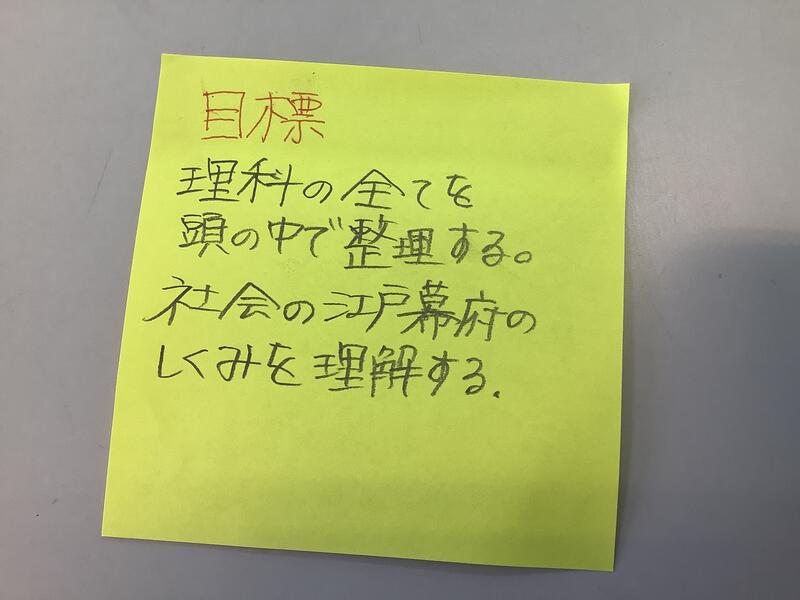 目標
理科の全てを
頭の中で整理する。
社会の江戸幕府の
しくみを理解する.